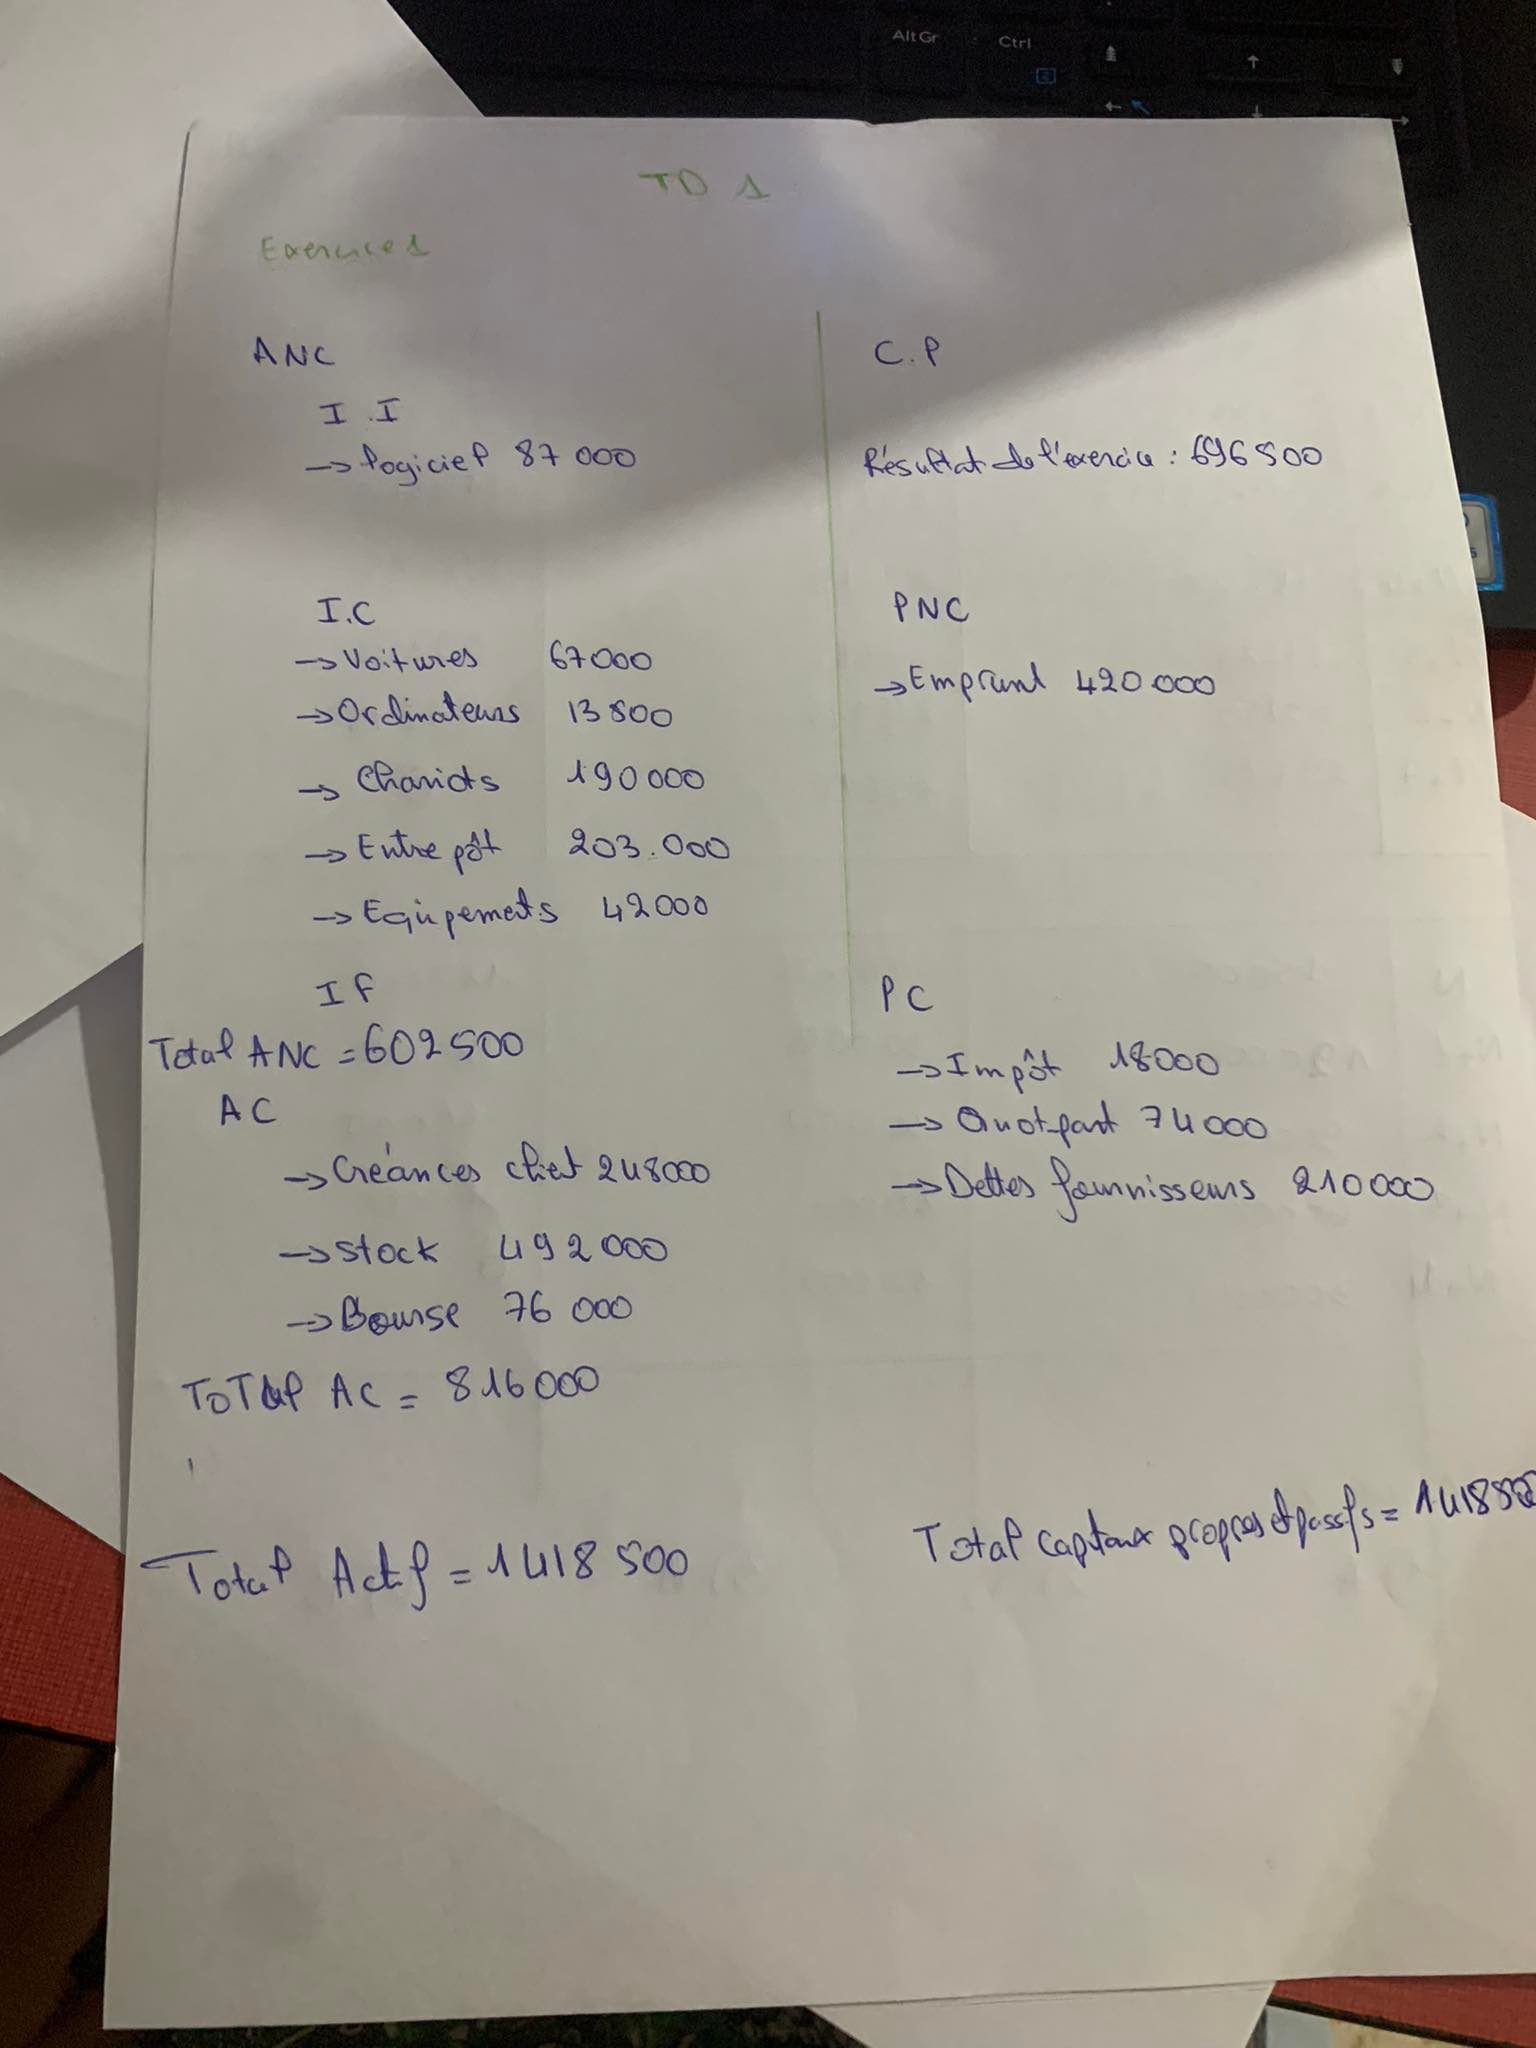 AltGr Ctrl
TD 1
Exercice 1
ANC
I.I
→ logiciel 87 000
I.C
→ Voitures 67000
→ Ordinateurs 13 500
→ Chariots 190 000
→ Entrepôt 203.000
→ Equipements 42000
IF
Total ANC = 602 500
AC
→ Créances client 248000
→ stock 492 000
→ Bourse 76 000
ToTal AC = 816 000
Total Actif = 1 418 500
C.P
Résultat de l'exercice : 696 500
PNC
→ Emprunt 420 000
PC
→ Impôt 18000
→ Quot-part 74 000
→ Dettes fournisseurs 210 000
Total capitaux propres et passifs =